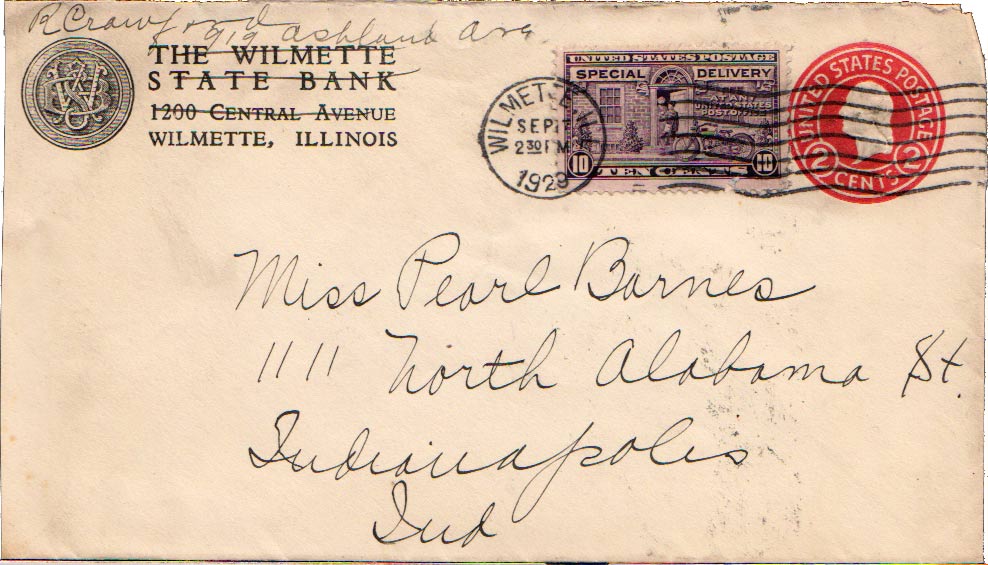 R Crawford
919 Ashland Ave.
THE WILMETTE
STATE BANK
1200 CENTRAL AVENUE
WILMETTE, ILLINOIS
WILMETTE, ILL.
SEP
2 30 PM
1929
UNITED STATES POSTAGE
SPECIAL DELIVERY
AT ANY
UNITED STATES
POST OFFICE
10 TEN CENTS 10
UNITED STATES POSTAGE
2 CENTS 2
Miss Pearl Barnes
1111 North Alabama St.
Indianapolis
Ind